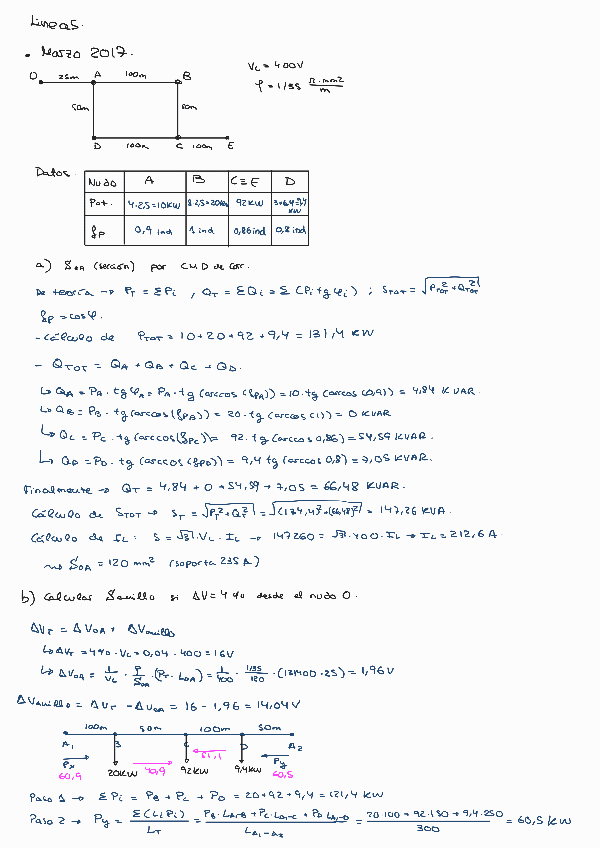 Lineas.
• Marzo 2017.
O 25m A 100m B
50m 50m
D 100m C 100m E
VL = 400V
ρ = 1/35 Ω·mm2/m
Datos.
Nudo A B C≡E D
Pot. 4·2,5=10KW 8·2,5=20KW 92KW
fp 0,9 ind 1 ind 0,86 ind 0,8 ind
a) SOA (sección) por CMD de Corr.
De teoría → PT = ΣPi , QT = ΣQi = Σ (Pi tg φi) ; STOT = √(PTOT² + QTOT²)
fp = cosφ.
- Cálculo de PTOT = 10 + 20 + 92 + 9,4 = 131,4 KW
- QTOT = QA + QB + QC + QD.
↳ QA = PA · tg φA = PA · tg (arccos (fpA)) = 10 · tg (arccos (0,9)) = 4,84 KVAR.
↳ QB = PB · tg (arccos (fpB)) = 20 · tg (arccos (1)) = 0 KVAR
↳ QC = PC · tg (arccos(fpC)) = 92 · tg (arccos 0,86) = 54,59 KVAR.
↳ QD = PD · tg (arccos (fpD)) = 9,4 tg (arccos 0,8) = 7,05 KVAR.
Finalmente → QT = 4,84 + 0 + 54,59 + 7,05 = 66,48 KVAR.
Cálculo de STOT → ST = √(PT² + QT²) = √((131,4)² + (66,48)²) = 147,26 KVA.
Cálculo de IL : S = √3 · VL · IL → 147260 = √3 · 400 · IL → IL = 212,6 A.
↝ SOA = 120 mm² (soporta 235 A)
b) Calcular Sanillo si ΔV = 4 % desde el nudo O.
ΔVT = ΔVOA + ΔVanillo
↳ ΔVT = 4% · VL = 0,04 · 400 = 16V
↳ ΔVOA = 1/VL · ρ/SOA · (PT · LOA) = 1/400 · 1/35/120 · (131400 · 25) = 1,96 V
ΔVanillo = ΔVT - ΔVOA = 16 - 1,96 = 14,04 V
100m 50m 100m 50m
A1 B C D A2
Px 60,9 20KW 40,9 92KW 51,1 9,4KW Py 60,5
Paso 1 → ΣPi = PB + PC + PD = 20 + 92 + 9,4 = 121,4 KW
Paso 2 → Py = Σ(Li Pi)/LT = (PB · LA1-B + PC · LA1-C + PD LA1-D)/LA1-A2 = (20·100 + 92·150 + 9,4·250)/300 = 60,5 KW